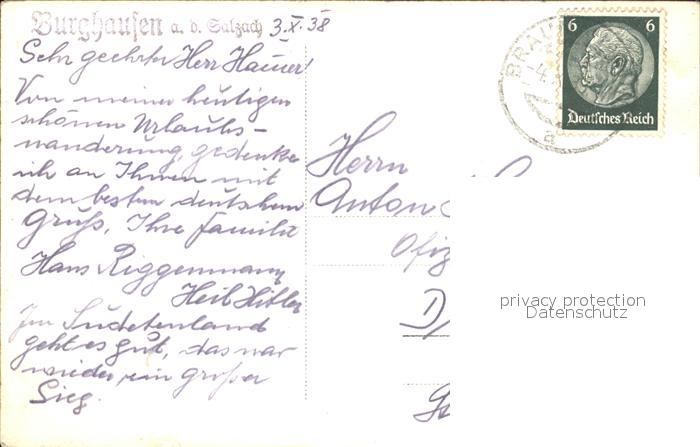 Burghausen a. d. Salzach 3.X.38
Sehr geehrter Herr Hauser!
Von meiner heutigen
schönen Urlaubs-
wanderung, gedenke
ich an Ihnen mit
dem besten deutschen
Gruß, Ihre Familie
Hans Riggenmann
Heil Hitler
Im Sudetenland
geht es gut, das war
wieder ein großer
Sieg.
Herrn
Anton
Ofiz
6 6
Deutsches Reich
BRAU
-4.
a
privacy protection
Datenschutz